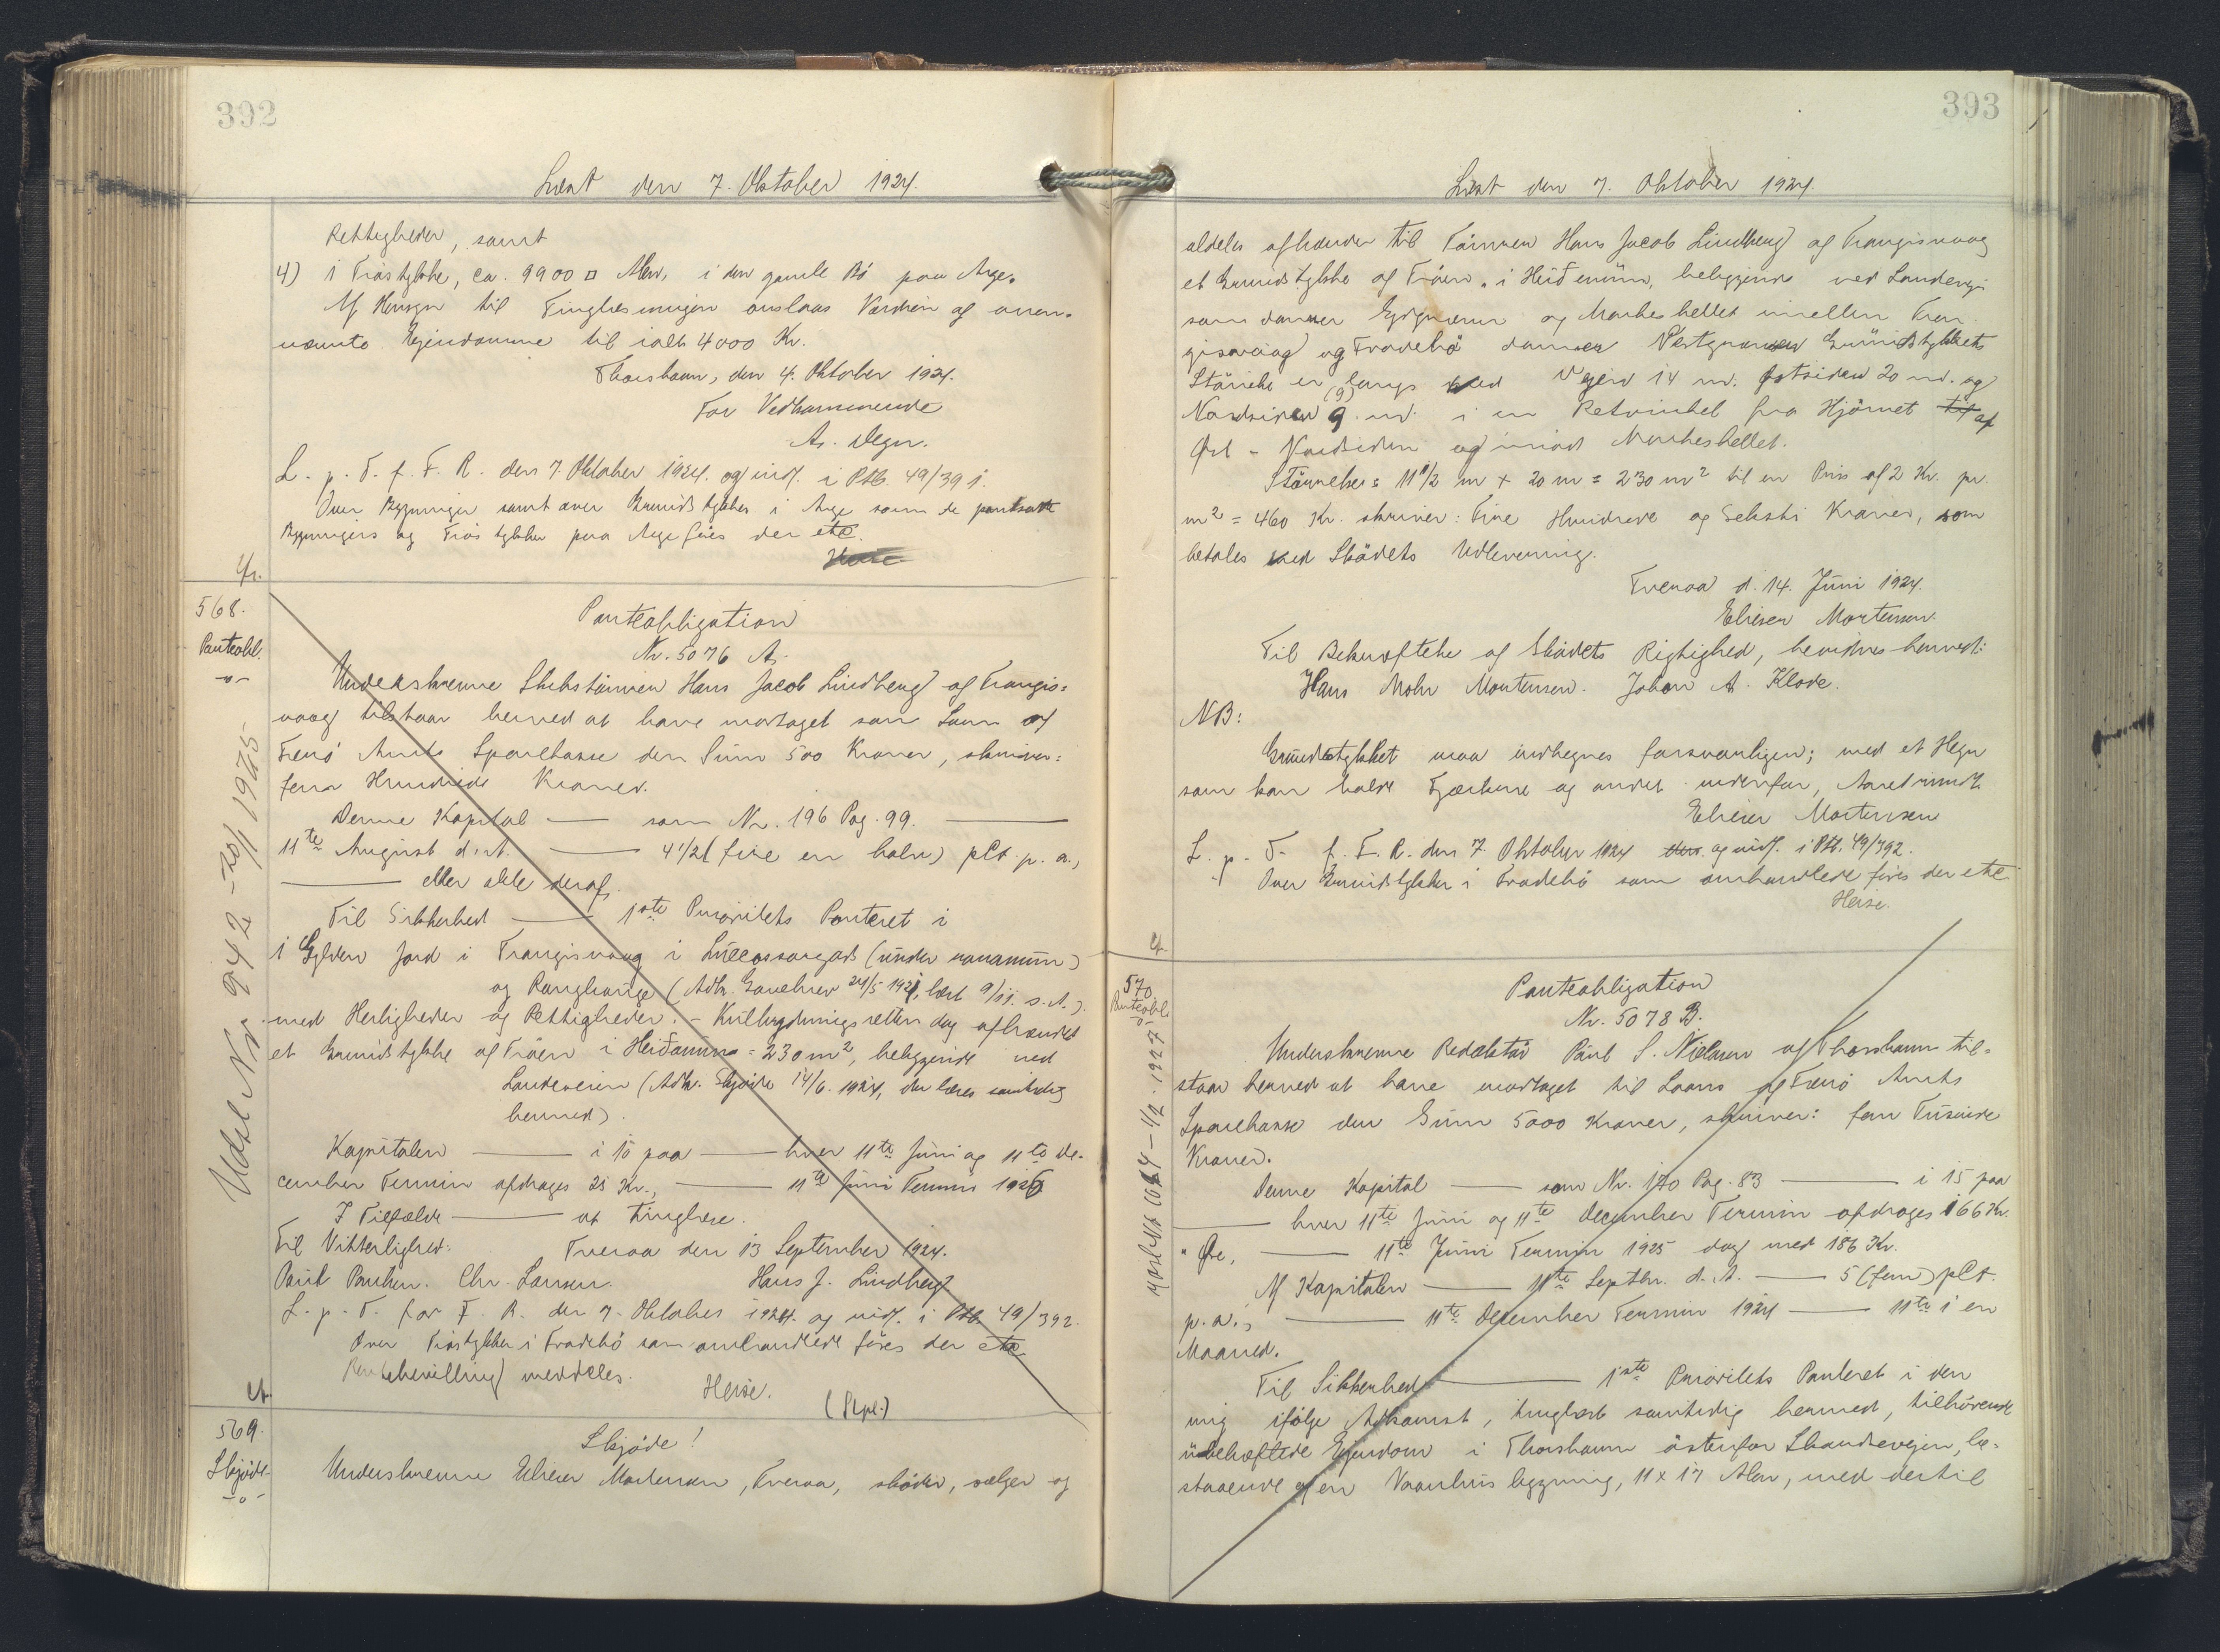 392
Læst den 7. Oktober 1924.
Rettigheder, samt
4) 1 Tråstykke, ca. 9900 □ Alen, i den gamle Bö paa Arge.
Af Hensyn til Tinglæsningen anslaas Værdien af oven-
nævnte Ejendomme til ialt 4000 Kr.
Thorshavn, den 4. Oktober 1924.
For Vedkommende
A. Degn.
L. p. T. f. F. R. den 7 Oktober 1924. og indf. i Ptb. 49/391.
Over Bygninger samt over Grundstykker i Arge som de pantsatte
Bygningers og Tråstykker paa Arge föres der etc.
Heise
Cfr.
568.
Panteobl.
-o-
Udsl Nr. 942 - 20/1 1925.
Panteobligation
Nr. 5076 A.
Underskrevne Skibstömrer Hans Jacob Lindberg af Trangis-
vaag tilstaar herved at have modtaget som Laan af
Færö Amts Sparekasse den Sum 500 Kroner, skriver:
fem Hundrede Kroner.
Denne Kapital — som Nr. 196 Pag. 99. —
11te August d. A. — 4 1/2 (fire en halv) pCt. p. a.,
— eller dele deraf.
Til Sikkerhed — 1ste Prioritets Panteret i
1 Gylden Jord i Trangisvaag i
og (Adk. Gavebrev 24/5 1921, læst 9/11. s. A.)
med Herligheder og Rettigheder. - Kulbrydningsretten dog afhændet
et Grundstykke af Tråen i Heiðanum = 230 m², beliggende ved
Landeveien (Adk. Skjöde 14/6. 1924, der læses samtidig
hermed).
Kapitalen — i 10 paa — hver 11te Juni og 11te De-
cember Termin afdrages 25 Kr., — 11te Juni Termin 1925
I Tilfælde — at tinglæse.
Til Vitterlighed: Tveraa den 13 September 1924.
Paul Poulsen. Chr. Larsen. Hans J. Lindberg
L. p. T. for F. R. den 7. Oktober 1924. og indf. i Ptb. 49/392.
Over Tråstykker i Frodebö som omhandlede föres der etc
Rentebevilling meddeles.
Heise.
(Rpl.)
Cf.
569.
Skjöde.
-o-
Skjöde!
Underskrevne Elieser Mortensen, Tveraa, sköder, sælger og
393
Læst den 7. Oktober 1924.
aldeles afhænder til Tömrer Hans Jacob Lindberg af Trangisvaag
et Grundstykke af Tråen, i Heiðunum, beliggende ved Landevej
som danner Sydgrænsen og Markeskellet imellem Tran-
gisvaag og Frodebö danner Vestgrænsen Grundstykkets
Störrelse er langs ved Vejen 14 m. Östsiden 20 m. og
Nordsiden 9 (9) m. i en Retvinkel fra Hjörnet til af
Öst- Nordsiden og imod Markeskellet.
Störrelse: 11 1/2 m × 20 m = 230 m² til en Pris af 2 Kr. pr.
m² = 460 Kr. skriver: Fire Hundrede og Seksti Kroner, som
betales ved Sködets Udlevering.
Tveraa d. 14. Juni 1924.
Elieser Mortensen.
Til Bekræftelse af Sködets Rigtighed, bevidnes herved:
Hans Mohr Mortensen. Johan A. Klode.
NB:
Grundstykket maa indhegnes forsvarligen; med et Hegn
som kan holde Fjerkræ og andet indenfor, Aaret rundt.
Elieser Mortensen
L. p. T. f. F. R. den 7. Oktober 1924 og indf. i Ptb. 49/392.
Over Grundstykker i Frodebö som omhandlede föres der etc
Heise.
Cf.
570
Panteobl.
-o-
1/2. 1927
Panteobligation
Nr. 5078 B.
Underskrevne Redaktör Paul S. Nielsen af Thorshavn til-
staar herved at have modtaget til Laans af Færö Amts
Sparekasse den Sum 5000 Kroner, skriver: fem Tusinde
Kroner.
Denne Kapital — som Nr. 170 Pag. 83 — i 15 paa
— hver 11te Juni og 11te December Termin afdrages 166 Kr.
" Öre, — 11te Juni Termin 1925 dog med 186 Kr.
Af Kapitalen — 11te Septbr. d. A. — 5 (fem) pCt.
p. a., — 11te December Termin 1924 — 11te i en
Maaned.
Til Sikkerhed — 1ste Prioritets Panteret i den
mig ifölge Adkomst, tinglæst samtidig hermed, tilhörende
ubehæftede Ejendom i Thorshavn östenfor Skandsevejen, be-
staaende af en Vaanhusbygning, 11 x 17 Alen, med dertil